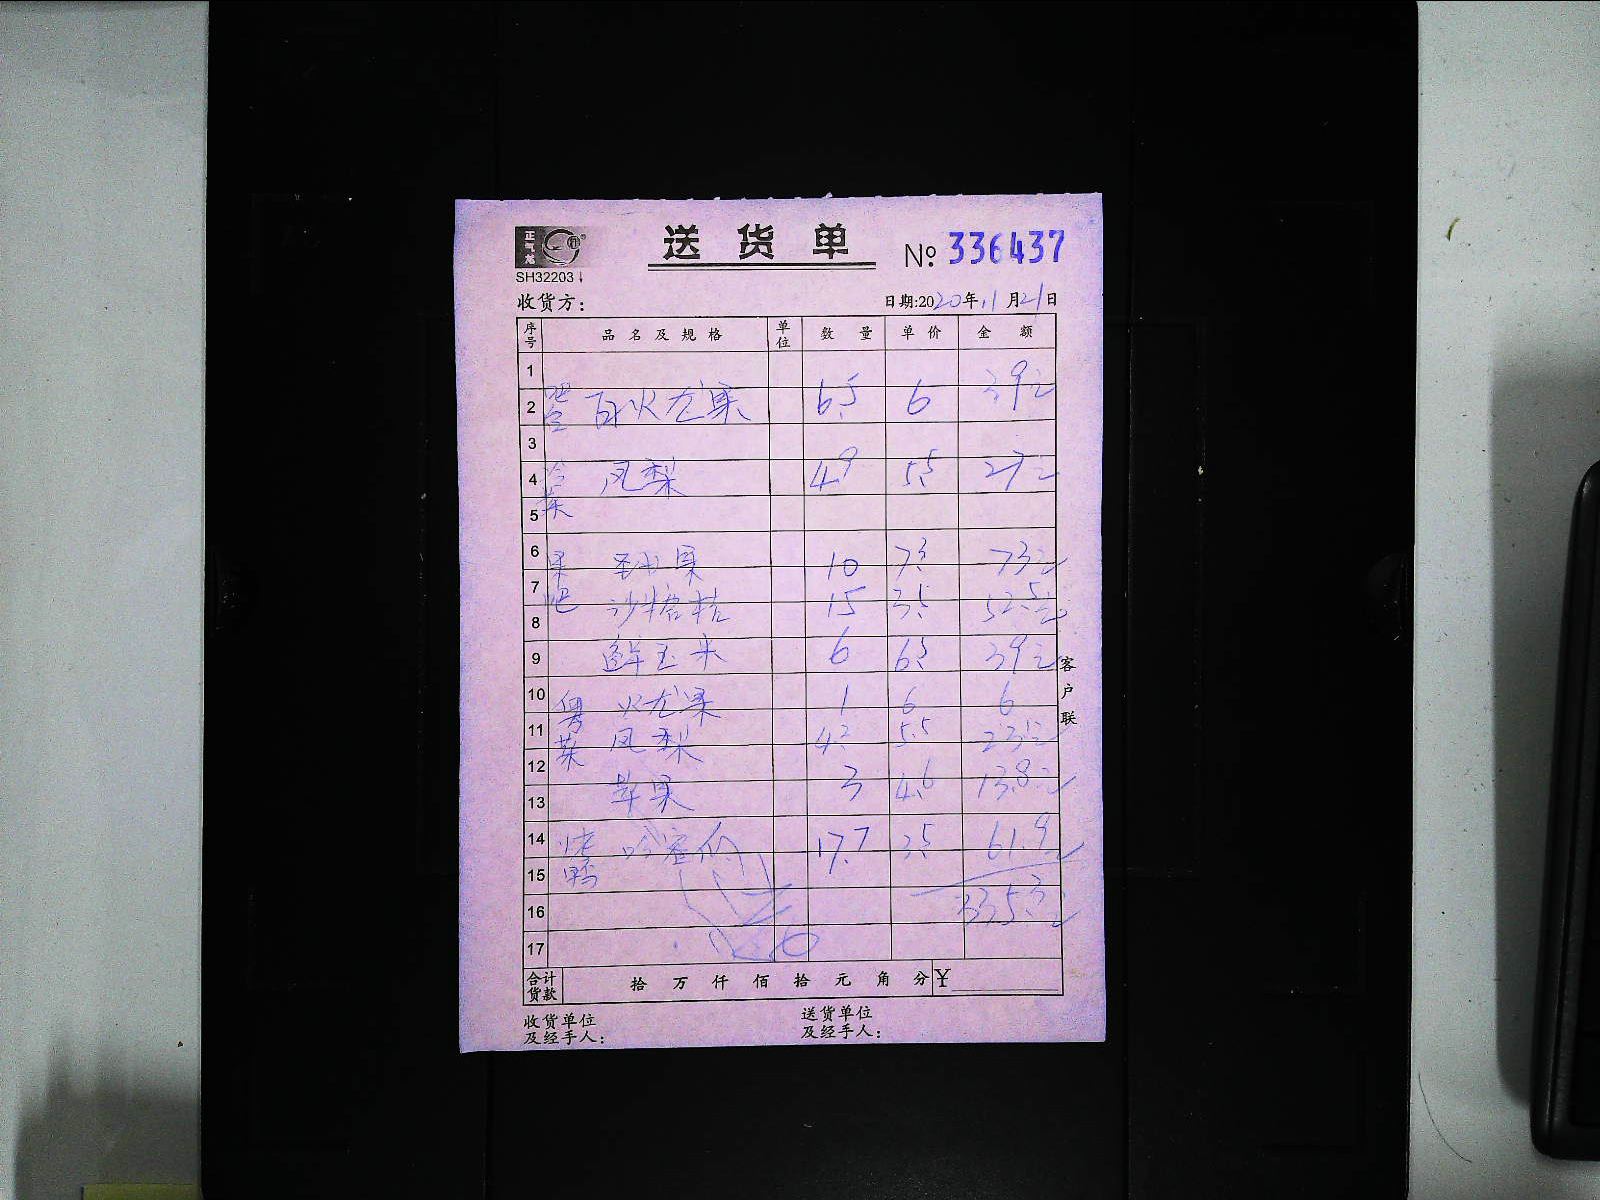 正气龙
SH32203
送货单
№ 336437
收货方：
日期:2020年11月21日
序号 品名及规格 单位 数量 单价 金额
1
2 吧台 白火龙果 6.5 6 39元
3
4 冷菜 凤梨 4.9 5.5 27元
5
6 果吧 圣女果 10 7.3 73元
7 沙糖桔 15 3.5 52.5元
8
9 鲜玉米 6 6.5 39元
10 粤菜 火龙果 1 6 6
11 凤梨 4.2 5.5 23.1元
12 苹果 3 4.6 13.8元
13
14 烤鸭 哈密瓜 17.7 3.5 61.9元
15
16 335.3元
17
合计货款 拾 万 仟 佰 拾 元 角 分 ¥
收货单位及经手人：
送货单位及经手人：
客户联